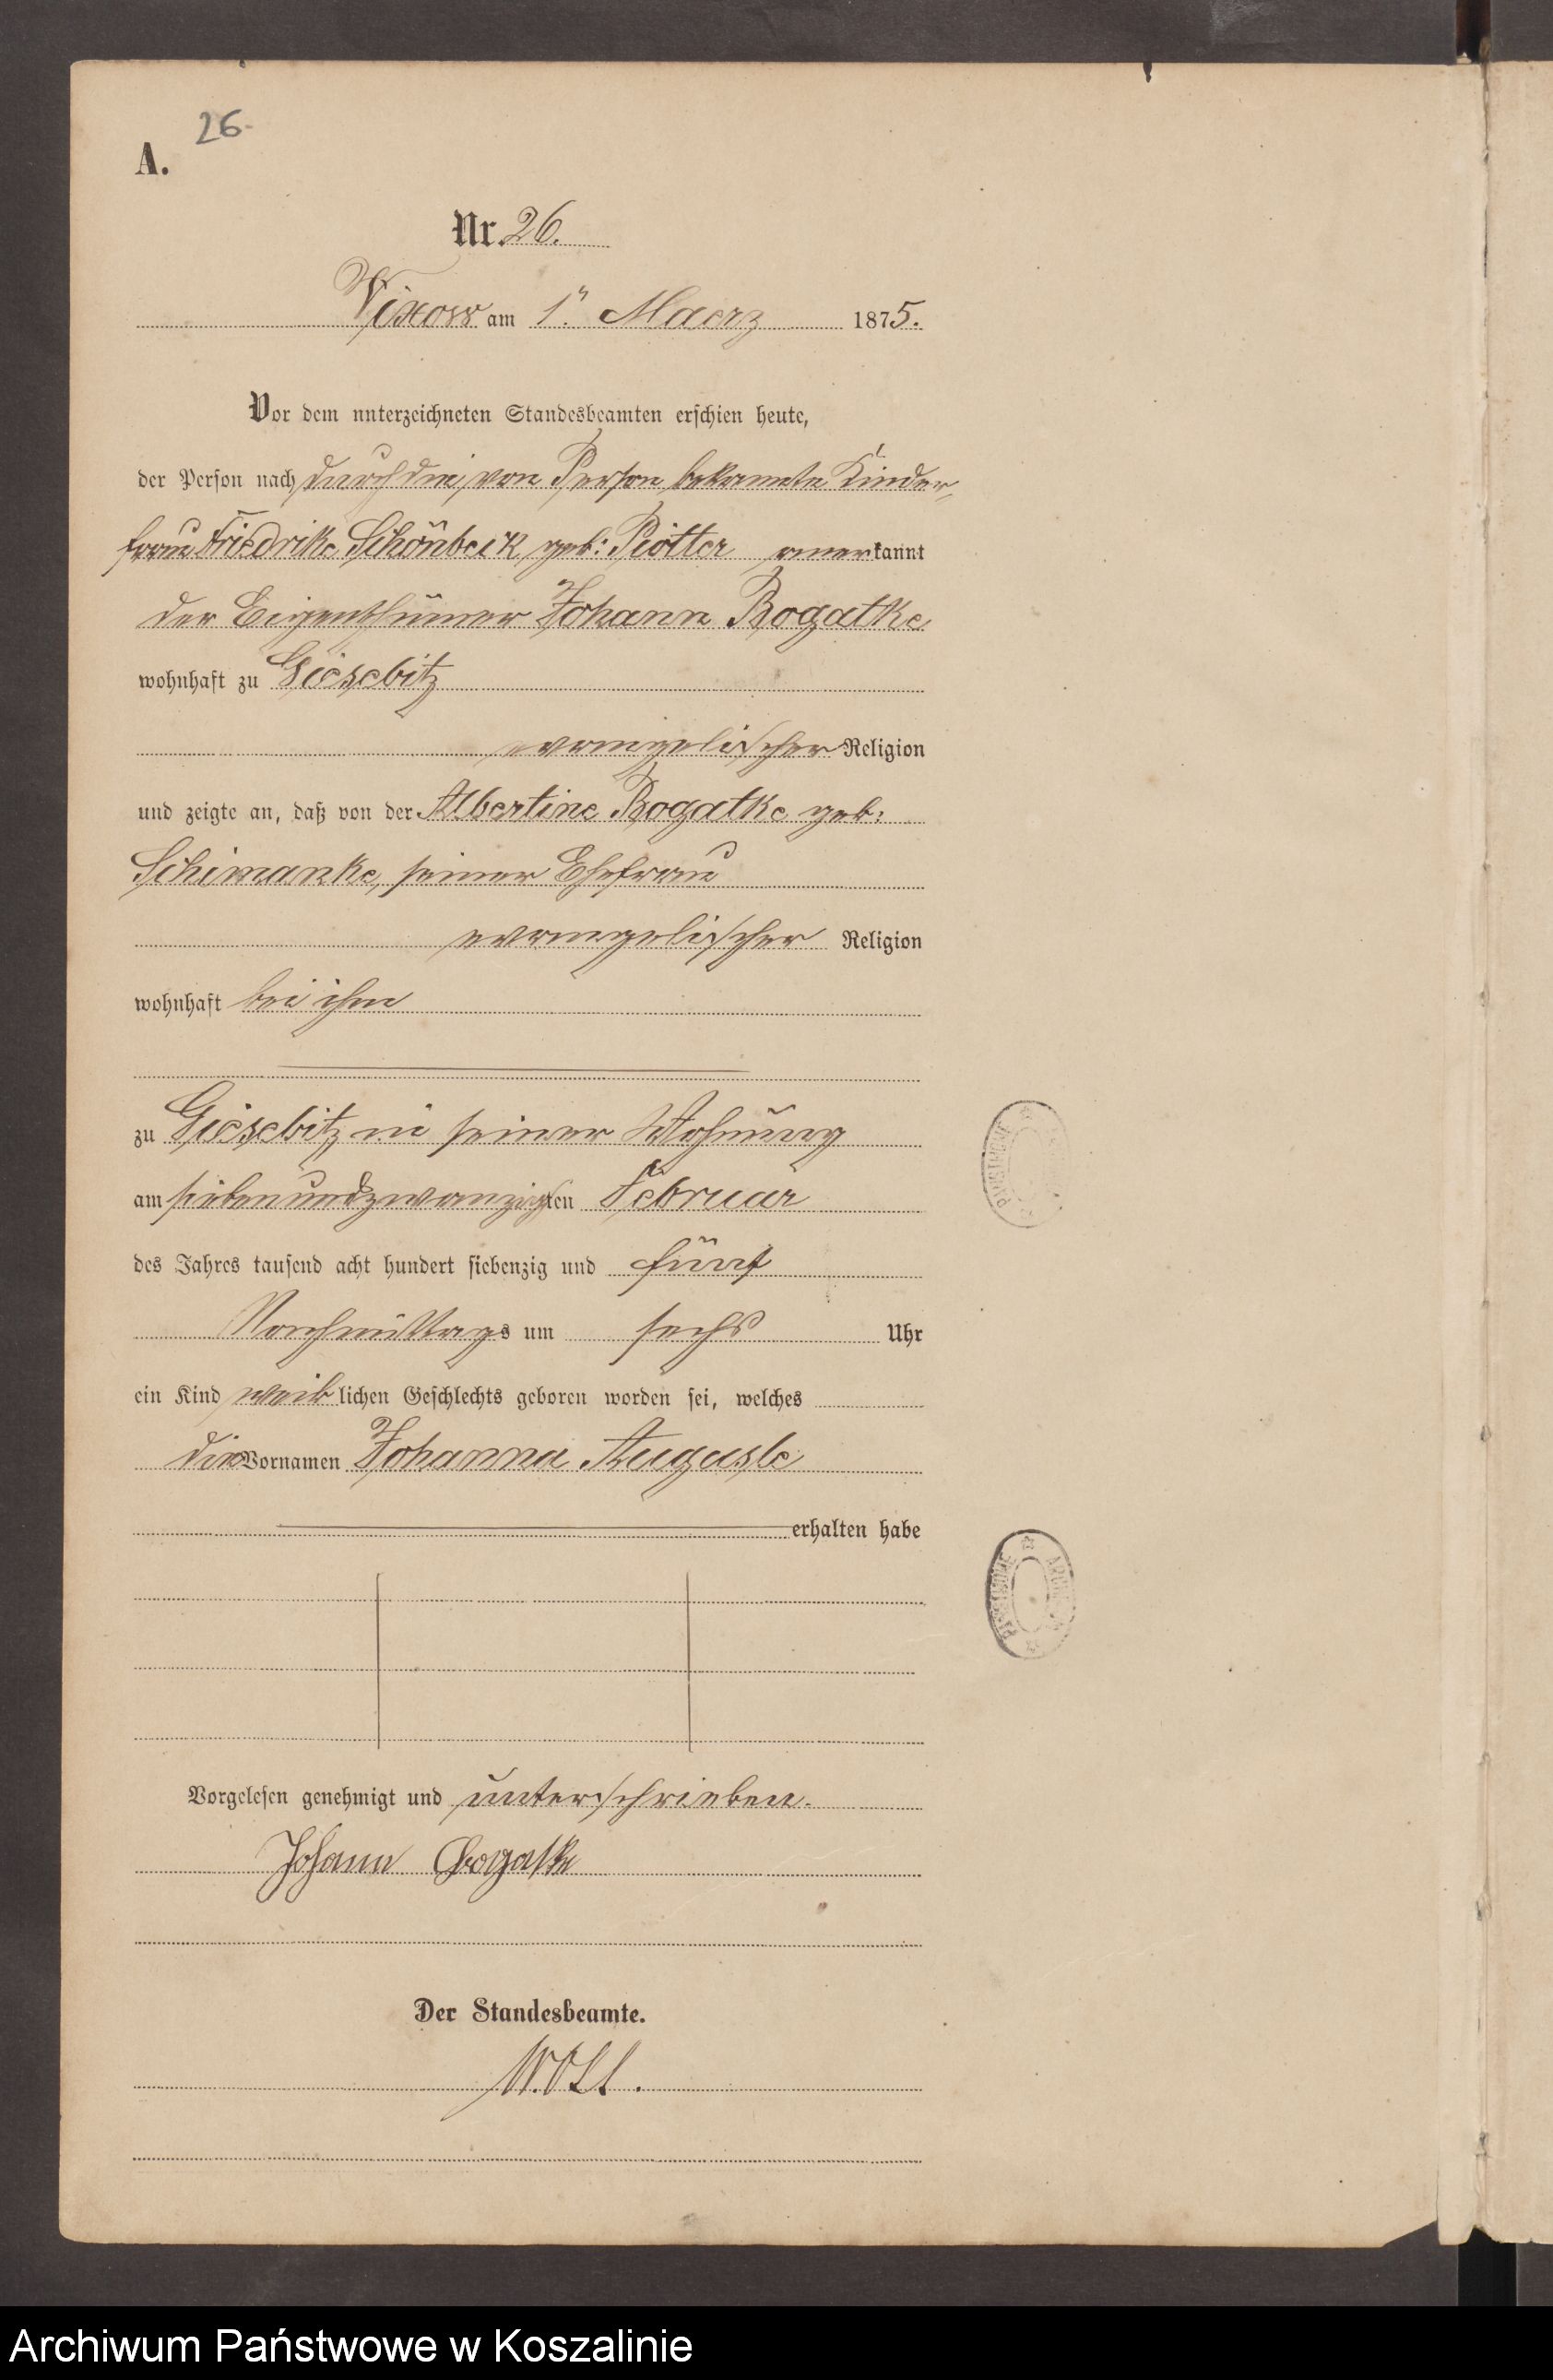 26.
A.
Nr. 26.
Vixow am 1ⁿ. Maerz 1875.
Vor dem unterzeichneten Standesbeamten erschien heute,
der Person nach durch die, von Person bekannte Kinder-
frau Friedrike Schönbeck, geb: Piotter anerkannt
der Eigenthümer Johann Bogatke
wohnhaft zu Giesebitz
evangelischer Religion
und zeigte an, daß von der Albertine Bogatke geb:
Schimanke, seiner Ehefrau
evangelischer Religion
wohnhaft bei ihm
zu Giesebitz in seiner Wohnung
am siebenundzwanzigsten Februar
des Jahres tausend acht hundert siebenzig und fünf
Nachmittags um sechs Uhr
ein Kind weiblichen Geschlechts geboren worden sei, welches
die Vornamen Johanna Auguste
erhalten habe
Vorgelesen genehmigt und unterschrieben.
Johann Bogatke
Der Standesbeamte.
ARCHIWUM
Archiwum Państwowe w Koszalinie